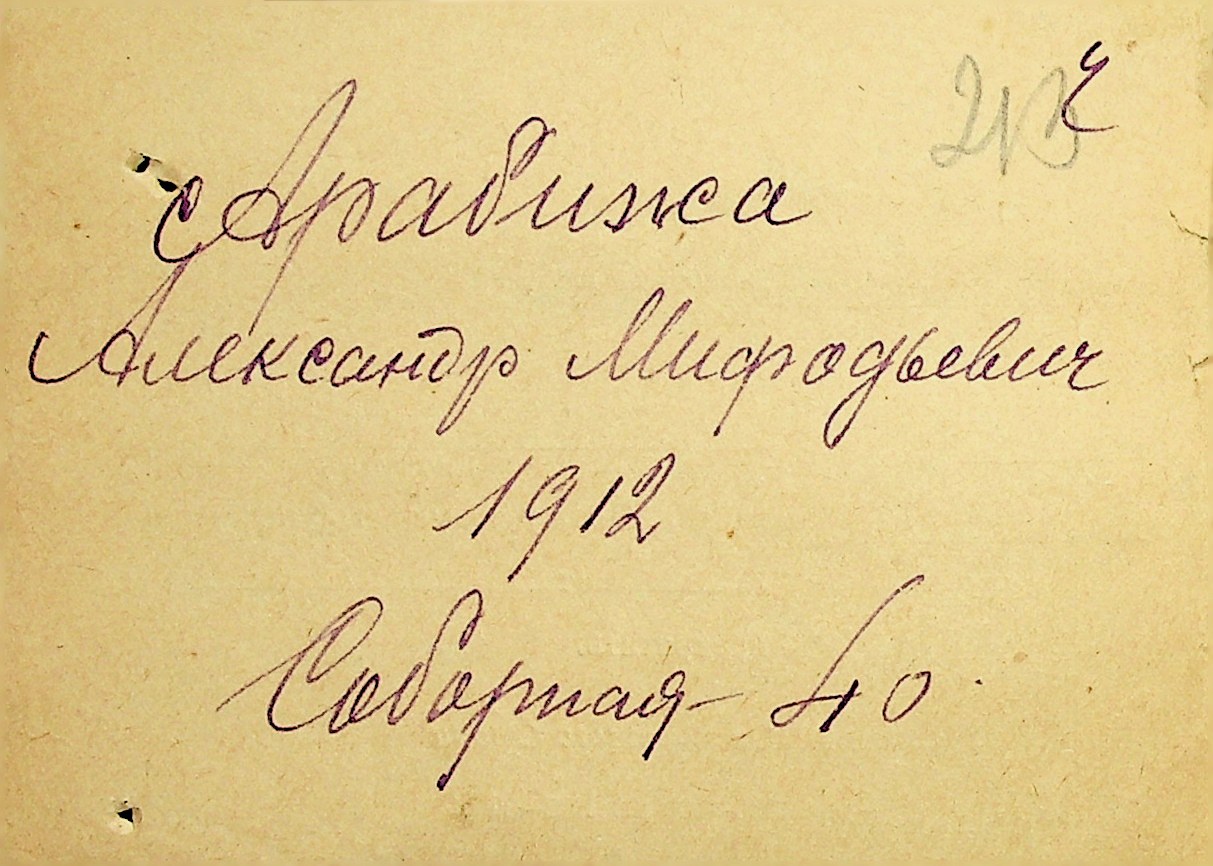 Арабижа
Александр Мифодьевич
1912
Соборная - 40